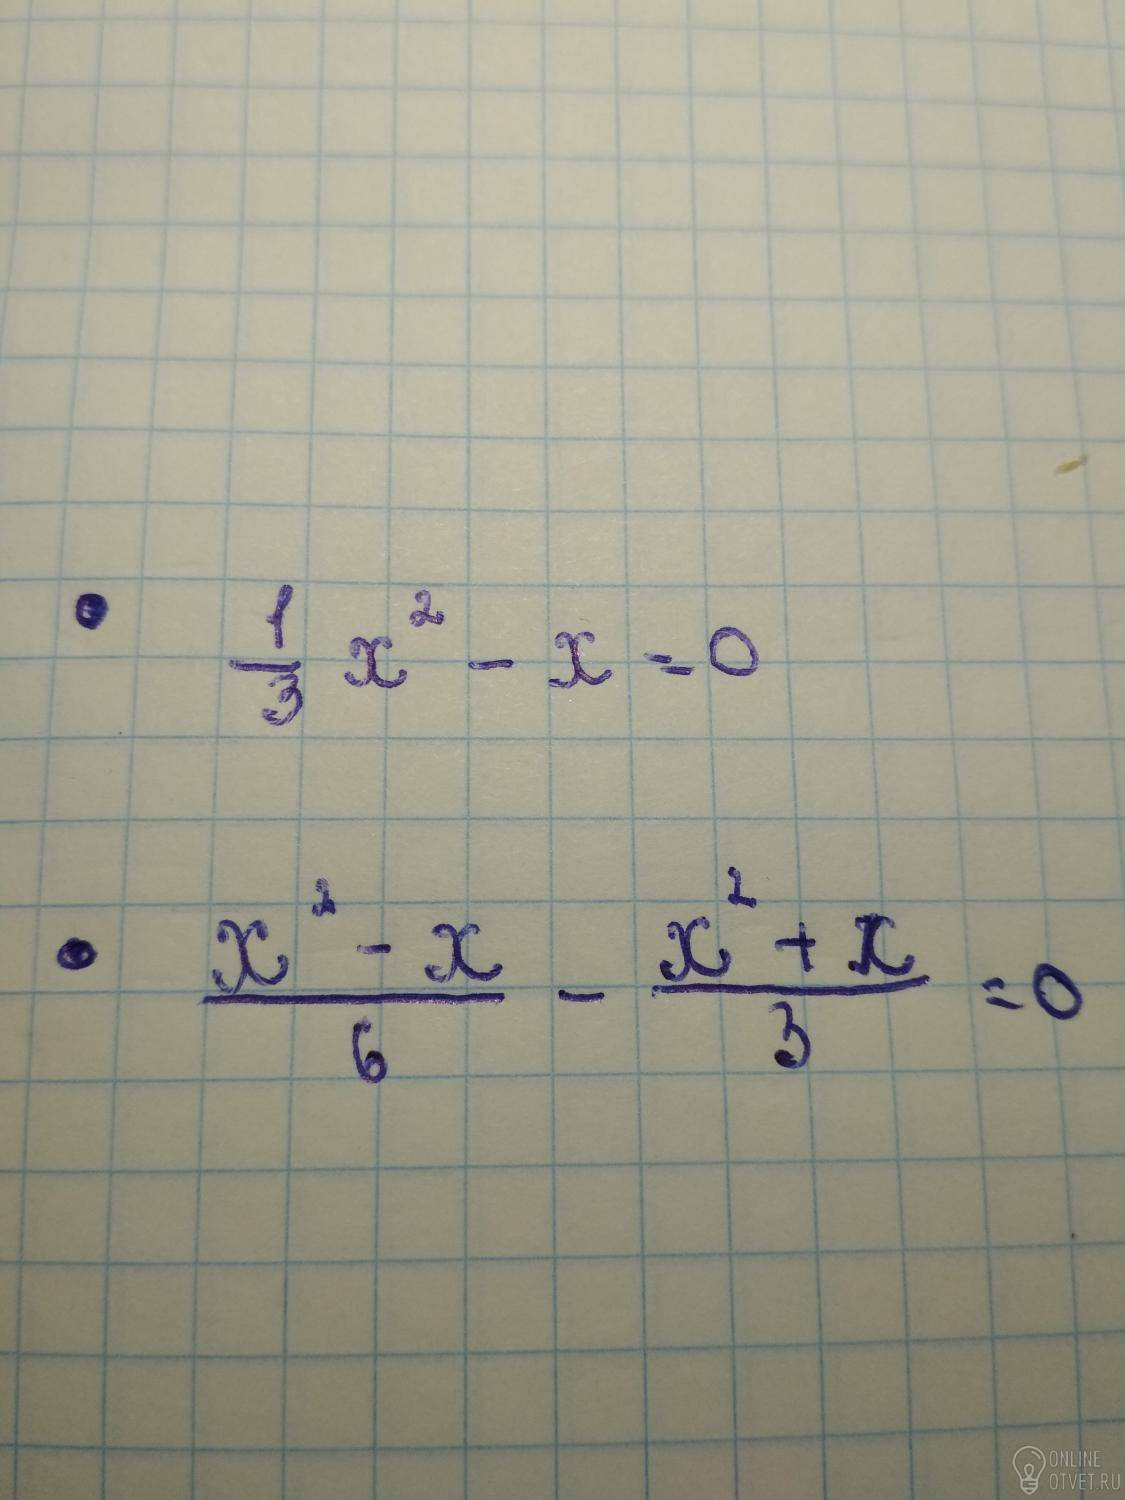 • 1/3 x² - x = 0
• x² - x / 6 - x² + x / 3 = 0
ONLINE
OTVET.RU